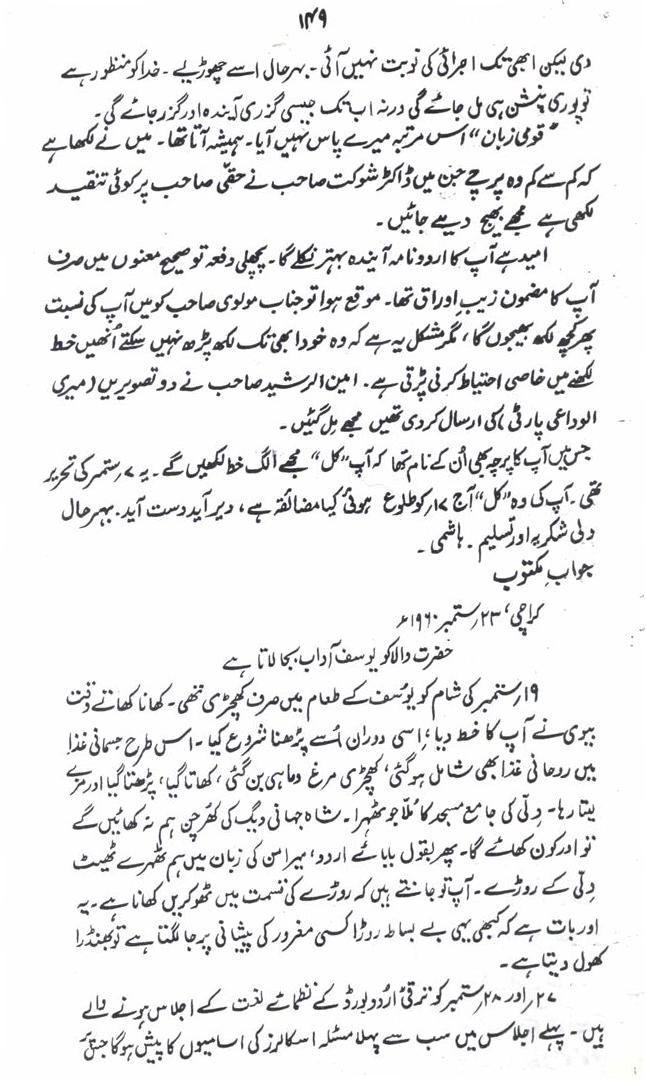 ۱۴۹
دی لیکن ابھی تک اجرائی کی نوبت نہیں آئی۔ بہرحال اسے چھوڑیے۔ خدا کو منظور ہے
تو پوری پنشن ہی مل جائے گی ورنہ اب تک جیسی گزری آیندہ اور گزر جائے گی۔
"قومی زبان" اس مرتبہ میرے پاس نہیں آیا۔ ہمیشہ آتا تھا۔ میں نے لکھا ہے
کہ کم سے کم وہ پرچے جن میں ڈاکٹر شوکت صاحب نے حقی صاحب پر کوئی تنقید
لکھی ہے مجھے بھیج دیے جائیں۔
امید ہے آپ کا اردو نامہ آیندہ بہتر نکلے گا۔ پچھلی دفعہ تو صحیح معنوں میں صرف
آپ کا مضمون زیبِ اوراق تھا۔ موقع ہوا تو جناب مولوی صاحب کو میں آپ کی نسبت
پھر کچھ لکھ بھیجوں گا، مگر مشکل یہ ہے کہ وہ خود ابھی تک لکھ پڑھ نہیں سکتے اُنھیں خط
لکھنے میں خاصی احتیاط کرنی پڑتی ہے۔ امین الرشید صاحب نے دو تصویریں (میری
الوداعی پارٹی) کی ارسال کر دی تھیں مجھے مل گئیں۔
جس میں آپ کا پرچہ بھی اُن کے نام تھا کہ آپ "کل" مجھے الگ خط لکھیں گے۔ یہ ۷ ستمبر کی تحریر
تھی۔ آپ کی وہ "کل" آج ۱۷ کو طلوع ہوئی کیا مضائقہ ہے، دیر آید درست آید۔ بہرحال
دلی شکریہ اور تسلیم۔ ہاشمی۔
جوابِ مکتوب
کراچی، ۲۳ ستمبر ۱۹۶۰ء
حضرت والا کو یوسف آداب بجا لاتا ہے
۱۹ ستمبر کی شام کو یوسف کے طعام میں صرف کھچڑی تھی۔ کھانا کھاتے وقت
بیوی نے آپ کا خط دیا؛ اسی دوران اُسے پڑھنا شروع کیا۔ اس طرح جسمانی غذا
میں روحانی غذا بھی شامل ہو گئی، کھچڑی مرغ و ماہی بن گئی، کھاتا گیا، پڑھتا گیا اور مزے
لیتا رہا۔ دِلّی کی جامع مسجد کا مُلّا جو ٹھہرا۔ شاہ جہانی دیگ کی کھرچن ہم نہ کھائیں گے
تو اور کون کھائے گا۔ پھر بقول بابائے اردو، میرامن کی زبان میں ہم ٹھہرے ٹھیٹ
دِلّی کے روڑے۔ آپ تو جانتے ہیں کہ روڑے کی قسمت میں ٹھوکریں کھانا ہے۔ یہ
اور بات ہے کہ کبھی یہی بے بساط روڑا کسی مغرور کی پیشانی پر جا لگتا ہے تو بھنڈرا
کھول دیتا ہے۔
۲۷ اور ۲۸ ستمبر کو ترقی اُردو بورڈ کے نظمائے لغت کے اجلاس ہونے والے
ہیں۔ پہلے اجلاس میں سب سے پہلا مسئلہ اسکالرز کی اسامیوں کا پیش ہوگا جس پر